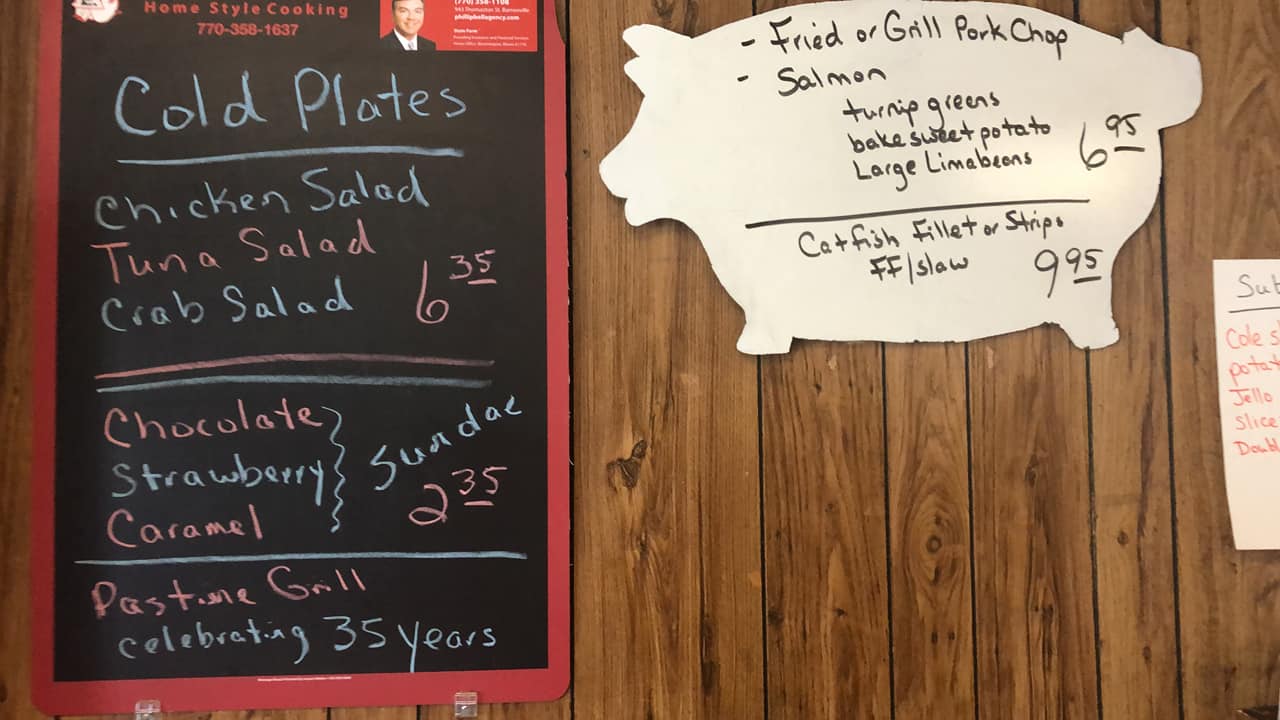 Home Style Cooking
770-358-1637
(770) 358-1108
943 Thomaston St, Barnesville
phillipbellagency.com
State Farm
Cold Plates
Chicken Salad
Tuna Salad
Crab Salad
6 35
Chocolate
Strawberry
Caramel
Sundae
2 35
Pastime Grill
celebrating 35 years
- Fried or Grill Pork Chop
- Salmon
turnip greens
bake sweet potato
Large Limabeans
6 95
Catfish Fillet or Strips
FF/slaw
9 95
Sub
Cole s
potat
Jello
Slice
Doubl